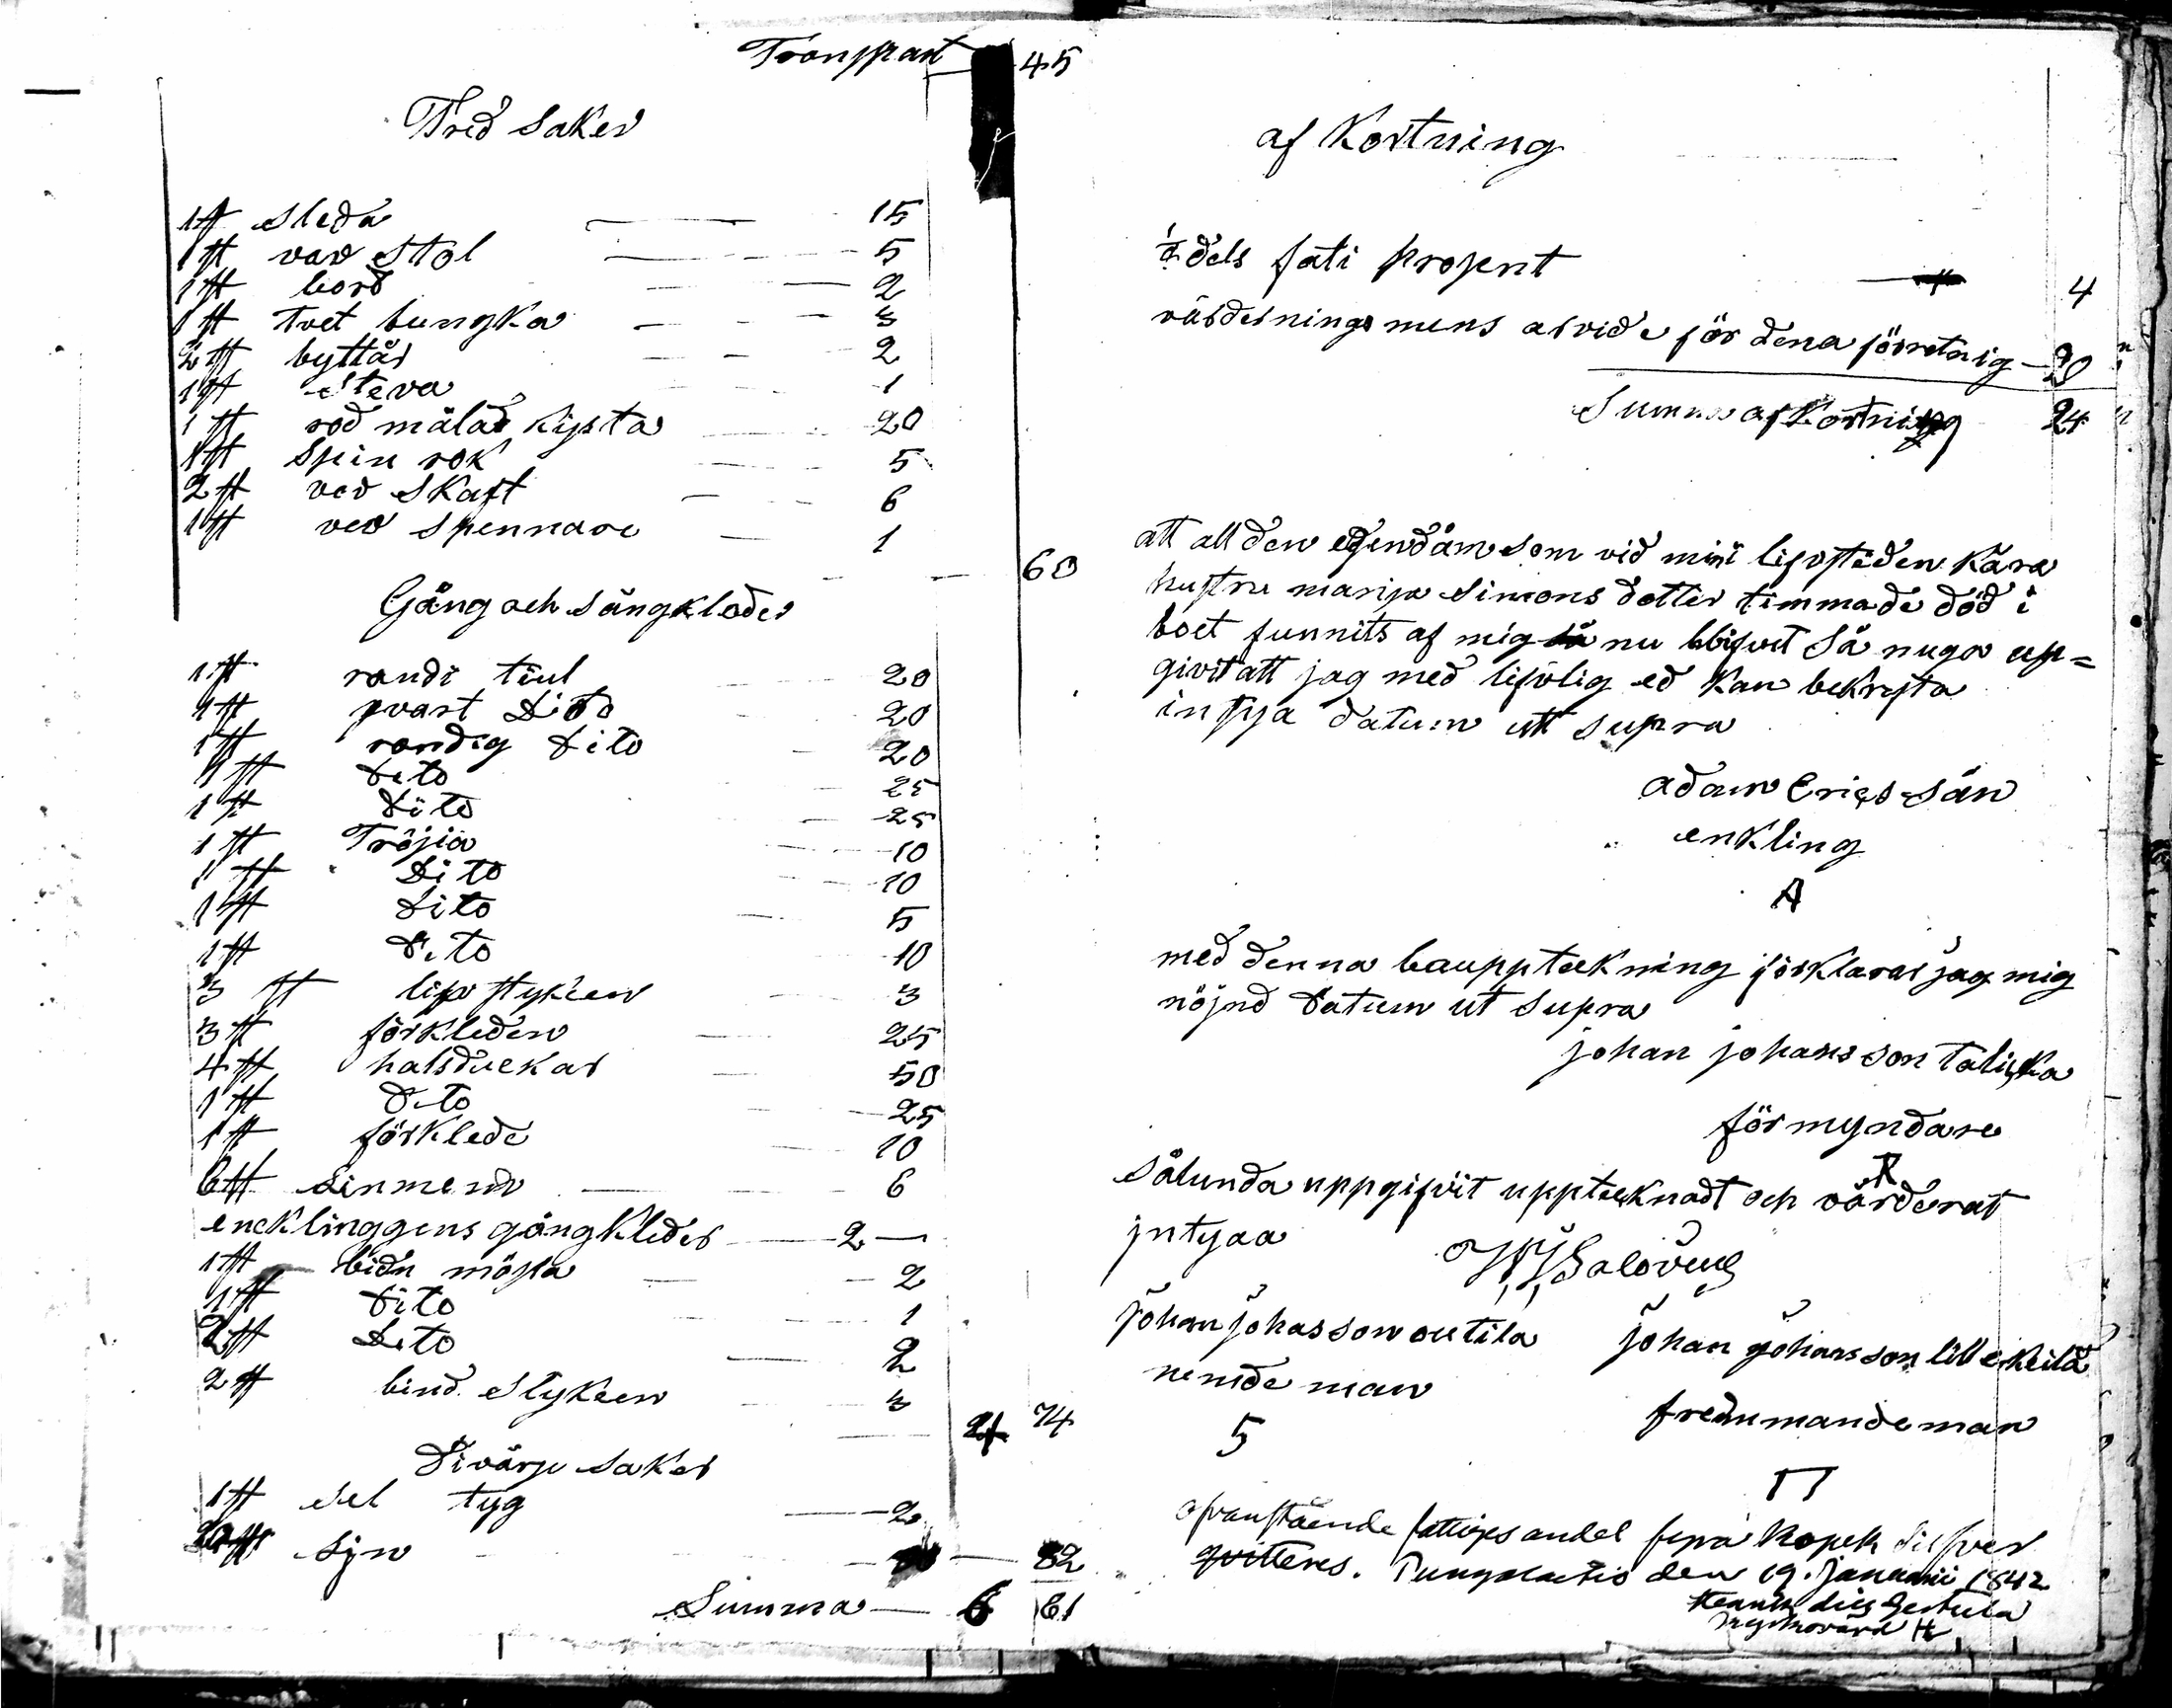 Transpart 45
Tred saker
1 st sleda 15
1 st vav stol 5
1 st bord 2
1 st tvet bungka 3
2 st byttår 2
1 st steva 1
1 st röd målad kijsta 20
1 st spin rok 5
2 st vav skaft 6
1 st vev spennare 1
60
Gång och sångkleder
1 st randi tiul 20
1 st qvart Dito 20
1 st randig dito 20
1 st dito 25
1 st Dito 25
1 st Tröjia 10
1 st Dito 10
1 st Dito 5
1 st Dito 10
3 st lifstykien 3
3 st förkleden 25
4 st halsduckar 50
1 st Dito 25
1 st förklede 10
6 st Linmenn 6
encklinggens gångkleder 2 —
1 st bidn mössa 2
1 st Dito 1
2 st Dito 2
2 st bind stykeen 3
74
Divärse saker
1 st sel tyg 2
sijn 82
Summa 6 61
af Kortning
1/8 dels fati prosent 4
värdernings mens arvide för dena förretnig 20
Summa af Kortning 24
att all den egendåm som vid min lifvstiden kära
hustru marija Simons dotter timmade död i
boet funnits af mig nu blifvet så nuga up=
givit att jag med lifvlig ed kan bekrefta
intyja datum utt supra
adam Ericssån
enkling
A
med denna bauppteckning förklarar jag mig
nöjnd datum ut supra
johan johansson taliska
förmyndare
sålunda uppgifvit uppteeknadt och värderat
jntyaa
johan johasson outila johan johansson lill eikeilä
nemde man fremmande man
5
ofvanstående fattiges andel fyra kopek silfver
qvitteres. Pungalaitis den 19. januarii 1842